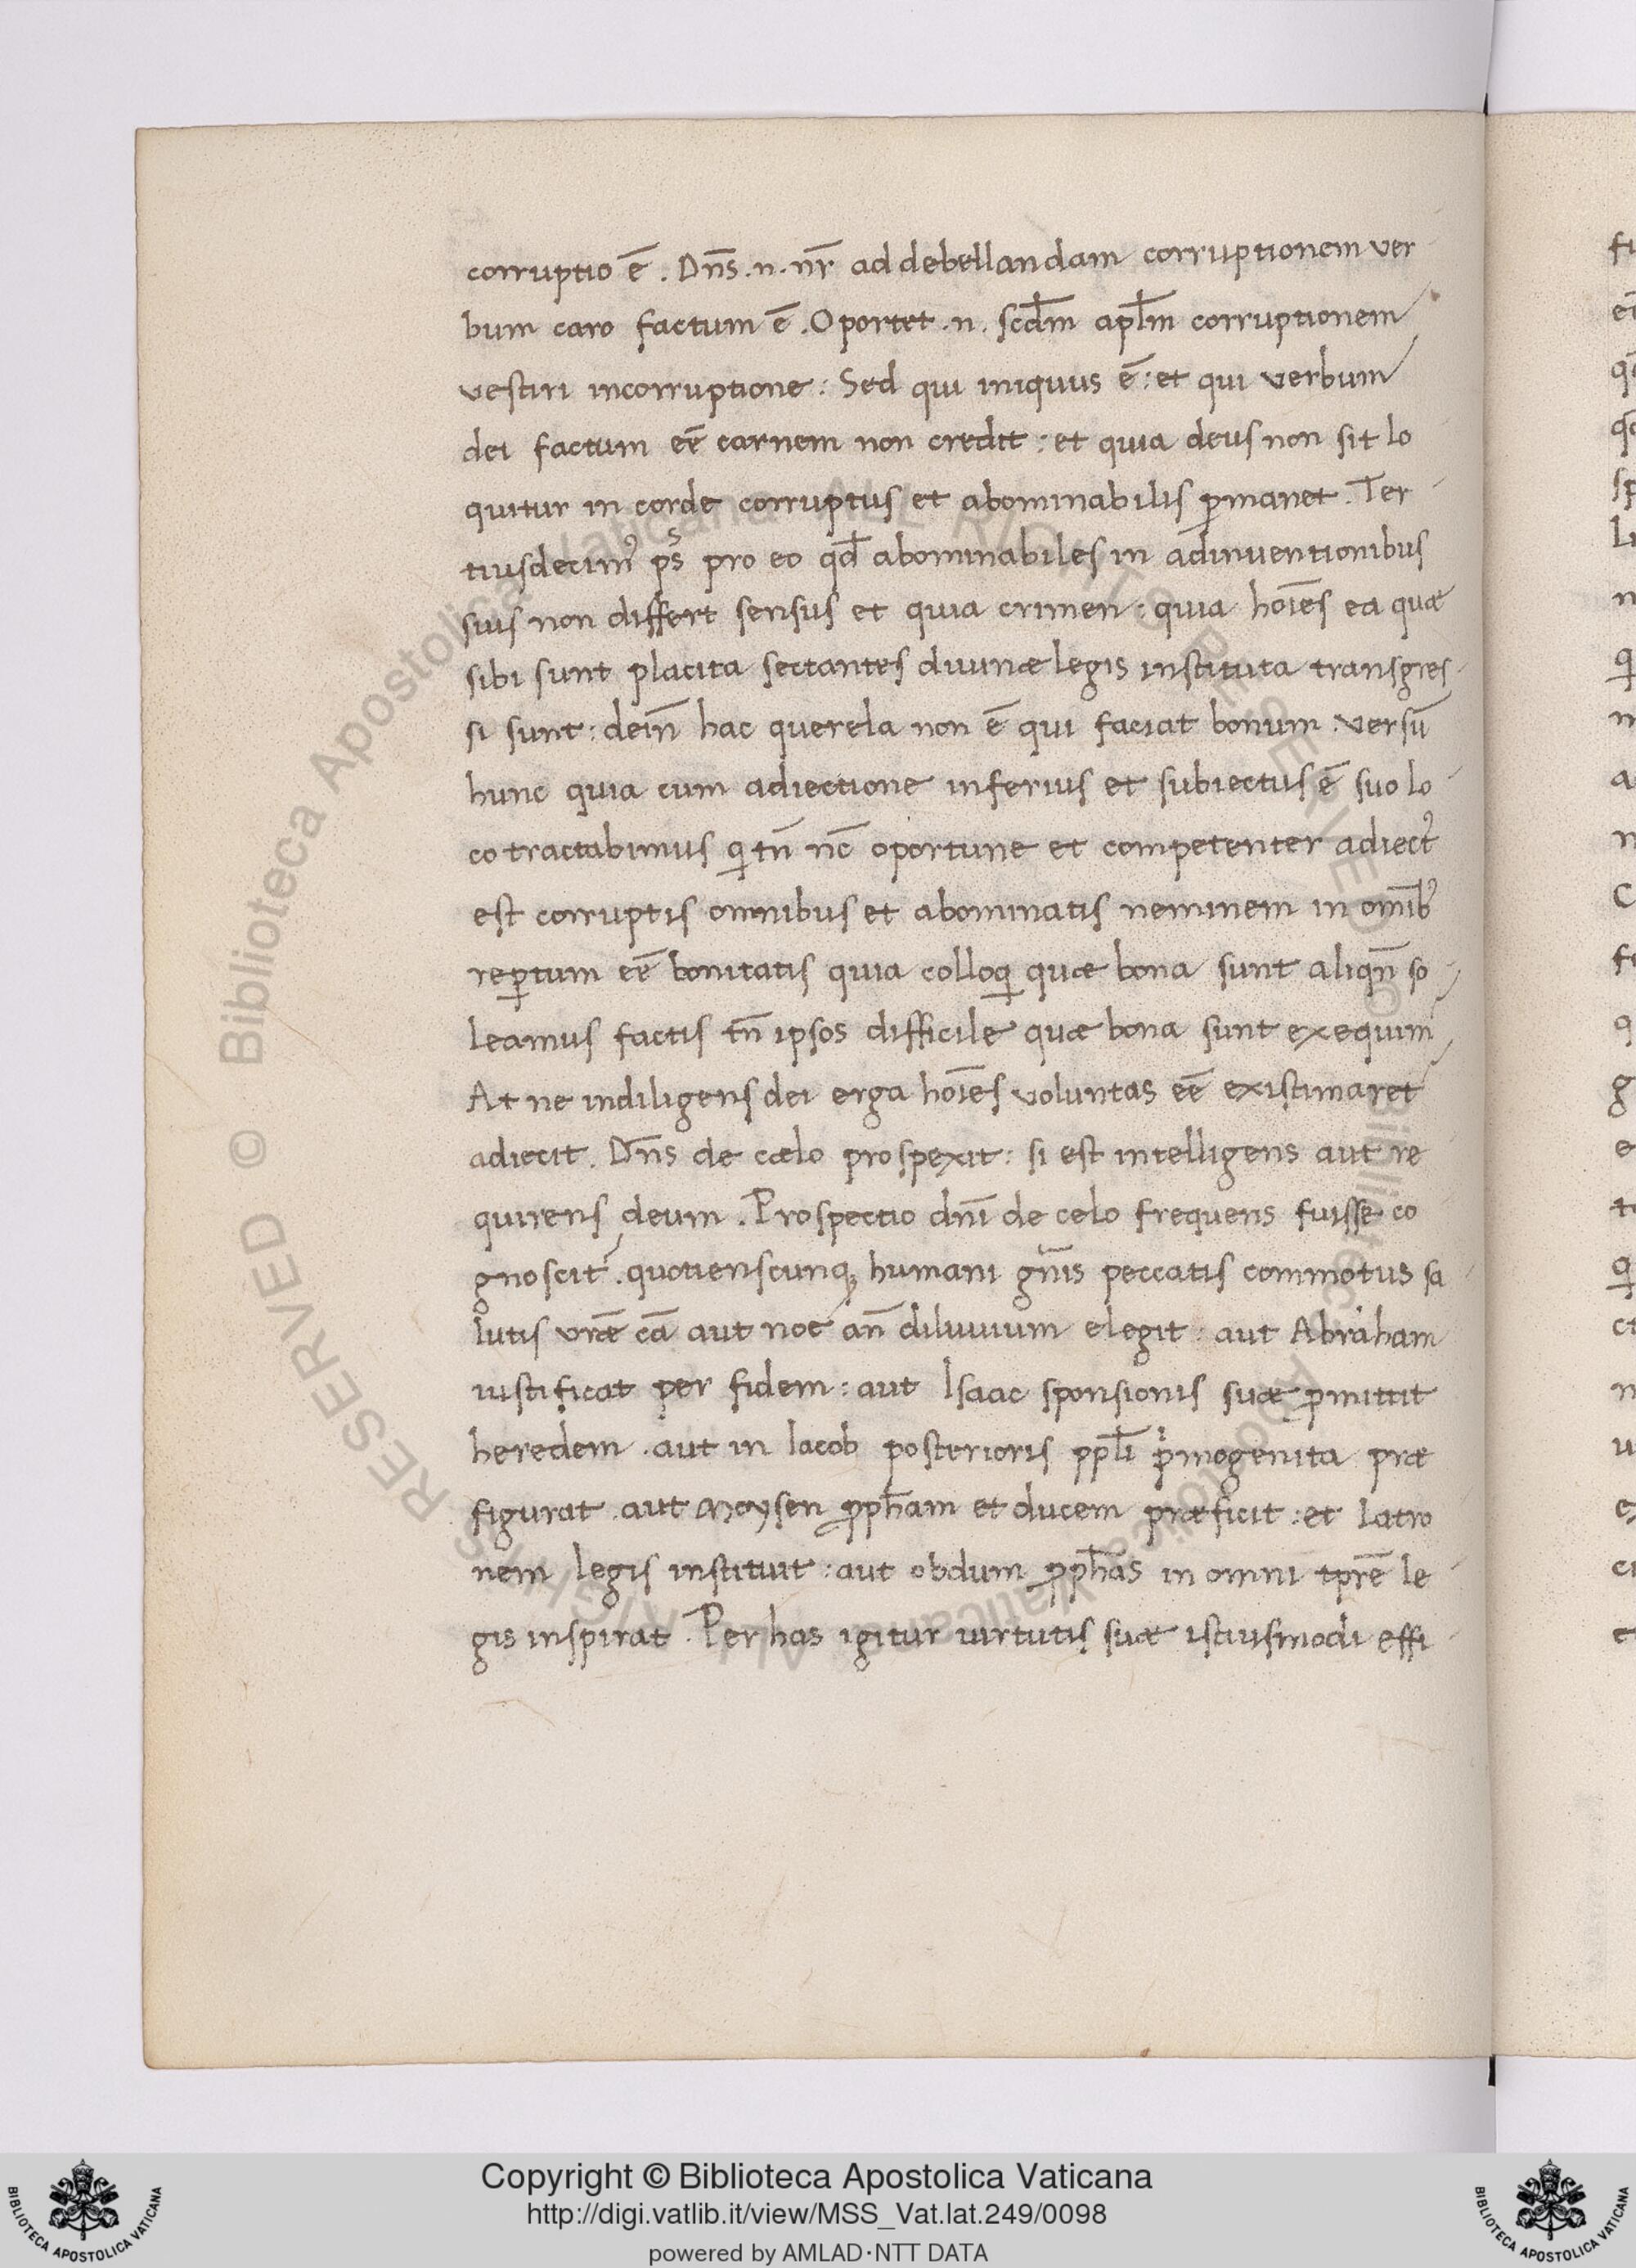 corruptio ē. Dn̄s .n. nr̄ ad debellandam corruptionem ver
bum caro factum ē. Oportet .n. scd̄m apl̄m corruptionem
vestiri incorruptione: Sed qui iniquus ē: et qui verbum
dei factum eē carnem non credit: et quia deus non sit lo
quitur in corde corruptus et abominabilis ꝑmanet. Ter
tiusdecimꝰ ps̄ pro eo qd̄ abominabiles in adinuentionibus
suis non differt sensus et quia crimen: quia hoīes ea quæ
sibi sunt placita sectantes diuinæ legis instituta transgres
si sunt: dein̄ hac querela non ē qui faciat bonum. versū
hunc quia cum adiectione inferius et subiectus ē suo lo
co tractabimus ꝗ tn̄ nc̄ oportune et competenter adiectꝰ
est corruptis omnibus et abominatis neminem in omībꝰ
reꝑtum eē bonitatis quia colloꝗ quæ bona sunt aliqn̄ so
leamus factis tn̄ ipsos difficile quæ bona sunt exequimꝰ
At ne indiligens dei erga hoīes voluntas eē existimaret
adiecit. Dn̄s de cælo prospexit: si est intelligens aut re
quirens deum. Prospectio dn̄i de celo frequens fuisse co
gnoscit. quotienscunqꝫ humani gn̄is peccatis commotus sa
lutis vr̄æ cā aut noe an̄ diluuium elegit: aut Abraham
iustificat per fidem: aut Isaac sponsionis suæ ꝓmittit
heredem. aut in Iacob posterioris ppl̄i pimogenita præ
figurat. aut Moysen ꝓph̄am et ducem præficit: et latro
nem legis instituit: aut obdum ꝓph̄as in omni tpr̄e le
gis inspirat. Per has igitur uirtutis suæ istiusmodi effi
Copyright © Biblioteca Apostolica Vaticana
http://digi.vatlib.it/view/MSS_Vat.lat.249/0098
powered by AMLAD·NTT DATA